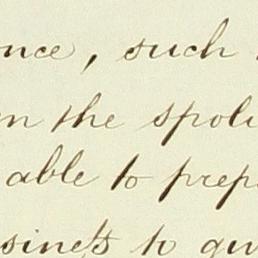 nce, such
n the spoli
able to prep
sinets to gu